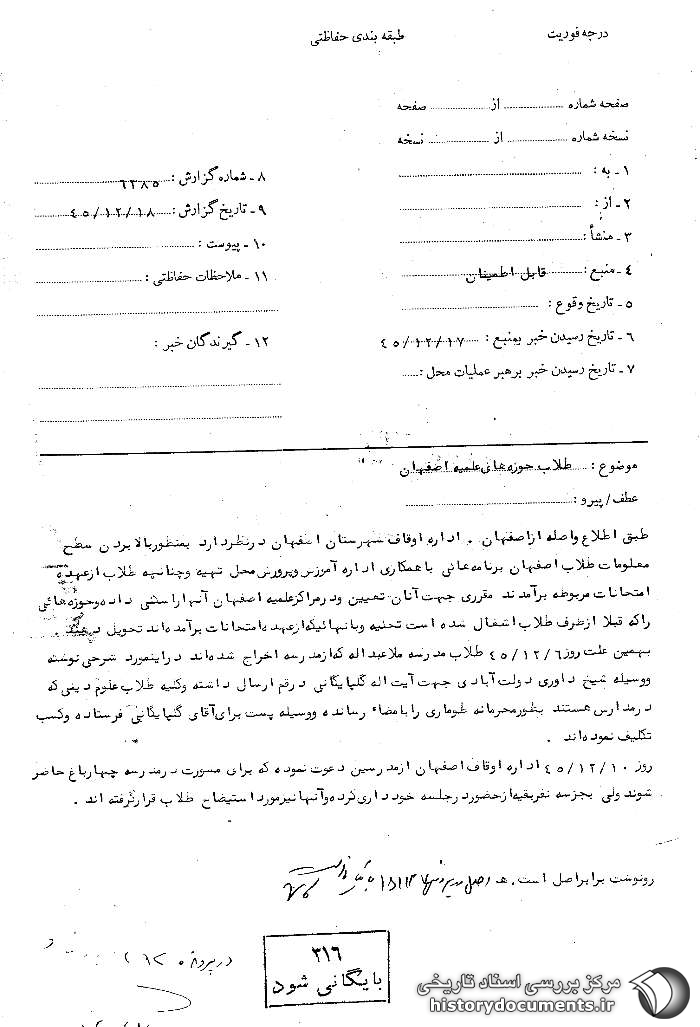 درجه فوریت
طبقه بندی حفاظتی
صفحه شماره ........ از ........ صفحه
نسخه شماره ........ از ........ نسخه
۱ - به :
۲ - از :
۳ - منشأ :
۴ - منبع : قابل اطمینان
۵ - تاریخ وقوع :
۶ - تاریخ رسیدن خبر بمنبع : ۴۵/۱۲/۱۷
۷ - تاریخ رسیدن خبر برهبر عملیات محل :
۸ - شماره گزارش : ۶۲۸۵
۹ - تاریخ گزارش : ۴۵/۱۲/۱۸
۱۰ - پیوست :
۱۱ - ملاحظات حفاظتی :
۱۲ - گیرندگان خبر :
موضوع : طلاب حوزه های علمیه اصفهان
عطف/ پیرو :
طبق اطلاع واصله از اصفهان . اداره اوقاف شهرستان اصفهان در نظر دارد بمنظور بالا بردن سطح
معلومات طلاب اصفهان برنامه هائی با همکاری اداره آموزش و پرورش محل تهیه و چنانچه طلاب از عهده
امتحانات مربوطه برآمدند مقرری جهت آنان تعیین و در مراکز علمیه اصفهان آنها را سکنی داده و حوزه هائی
را که قبلا از طرف طلاب اشغال شده است تخلیه و بآنهائیکه از عهده امتحانات برآمده اند تحویل دهند .
بهمین علت روز ۴۵/۱۲/۶ طلاب مدرسه ملا عبداله که از مدرسه اخراج شده اند در اینمورد شرحی نوشته
و وسیله شیخ داوری دولت آبادی جهت آیت اله گلپایگانی در قم ارسال داشته و کلیه طلاب علوم دینی که
در مدارس هستند بطور محرمانه طوماری را بامضاء رسانده و وسیله پست برای آقای گلپایگانی فرستاده و کسب
تکلیف نموده اند .
روز ۴۵/۱۲/۱۰ اداره اوقاف اصفهان از مدرسین دعوت نموده که برای مشورت در مدرسه چهارباغ حاضر
شوند ولی بجز سه نفر بقیه از حضور در جلسه خودداری کرده و آنها نیز مورد استیضاح طلاب قرار گرفته اند .
رونوشت برابر اصل است . هـ اصل در پرونده
در پرونده
۳۱۶
بایگانی شود
مرکز بررسی اسناد تاریخی
historydocuments.ir